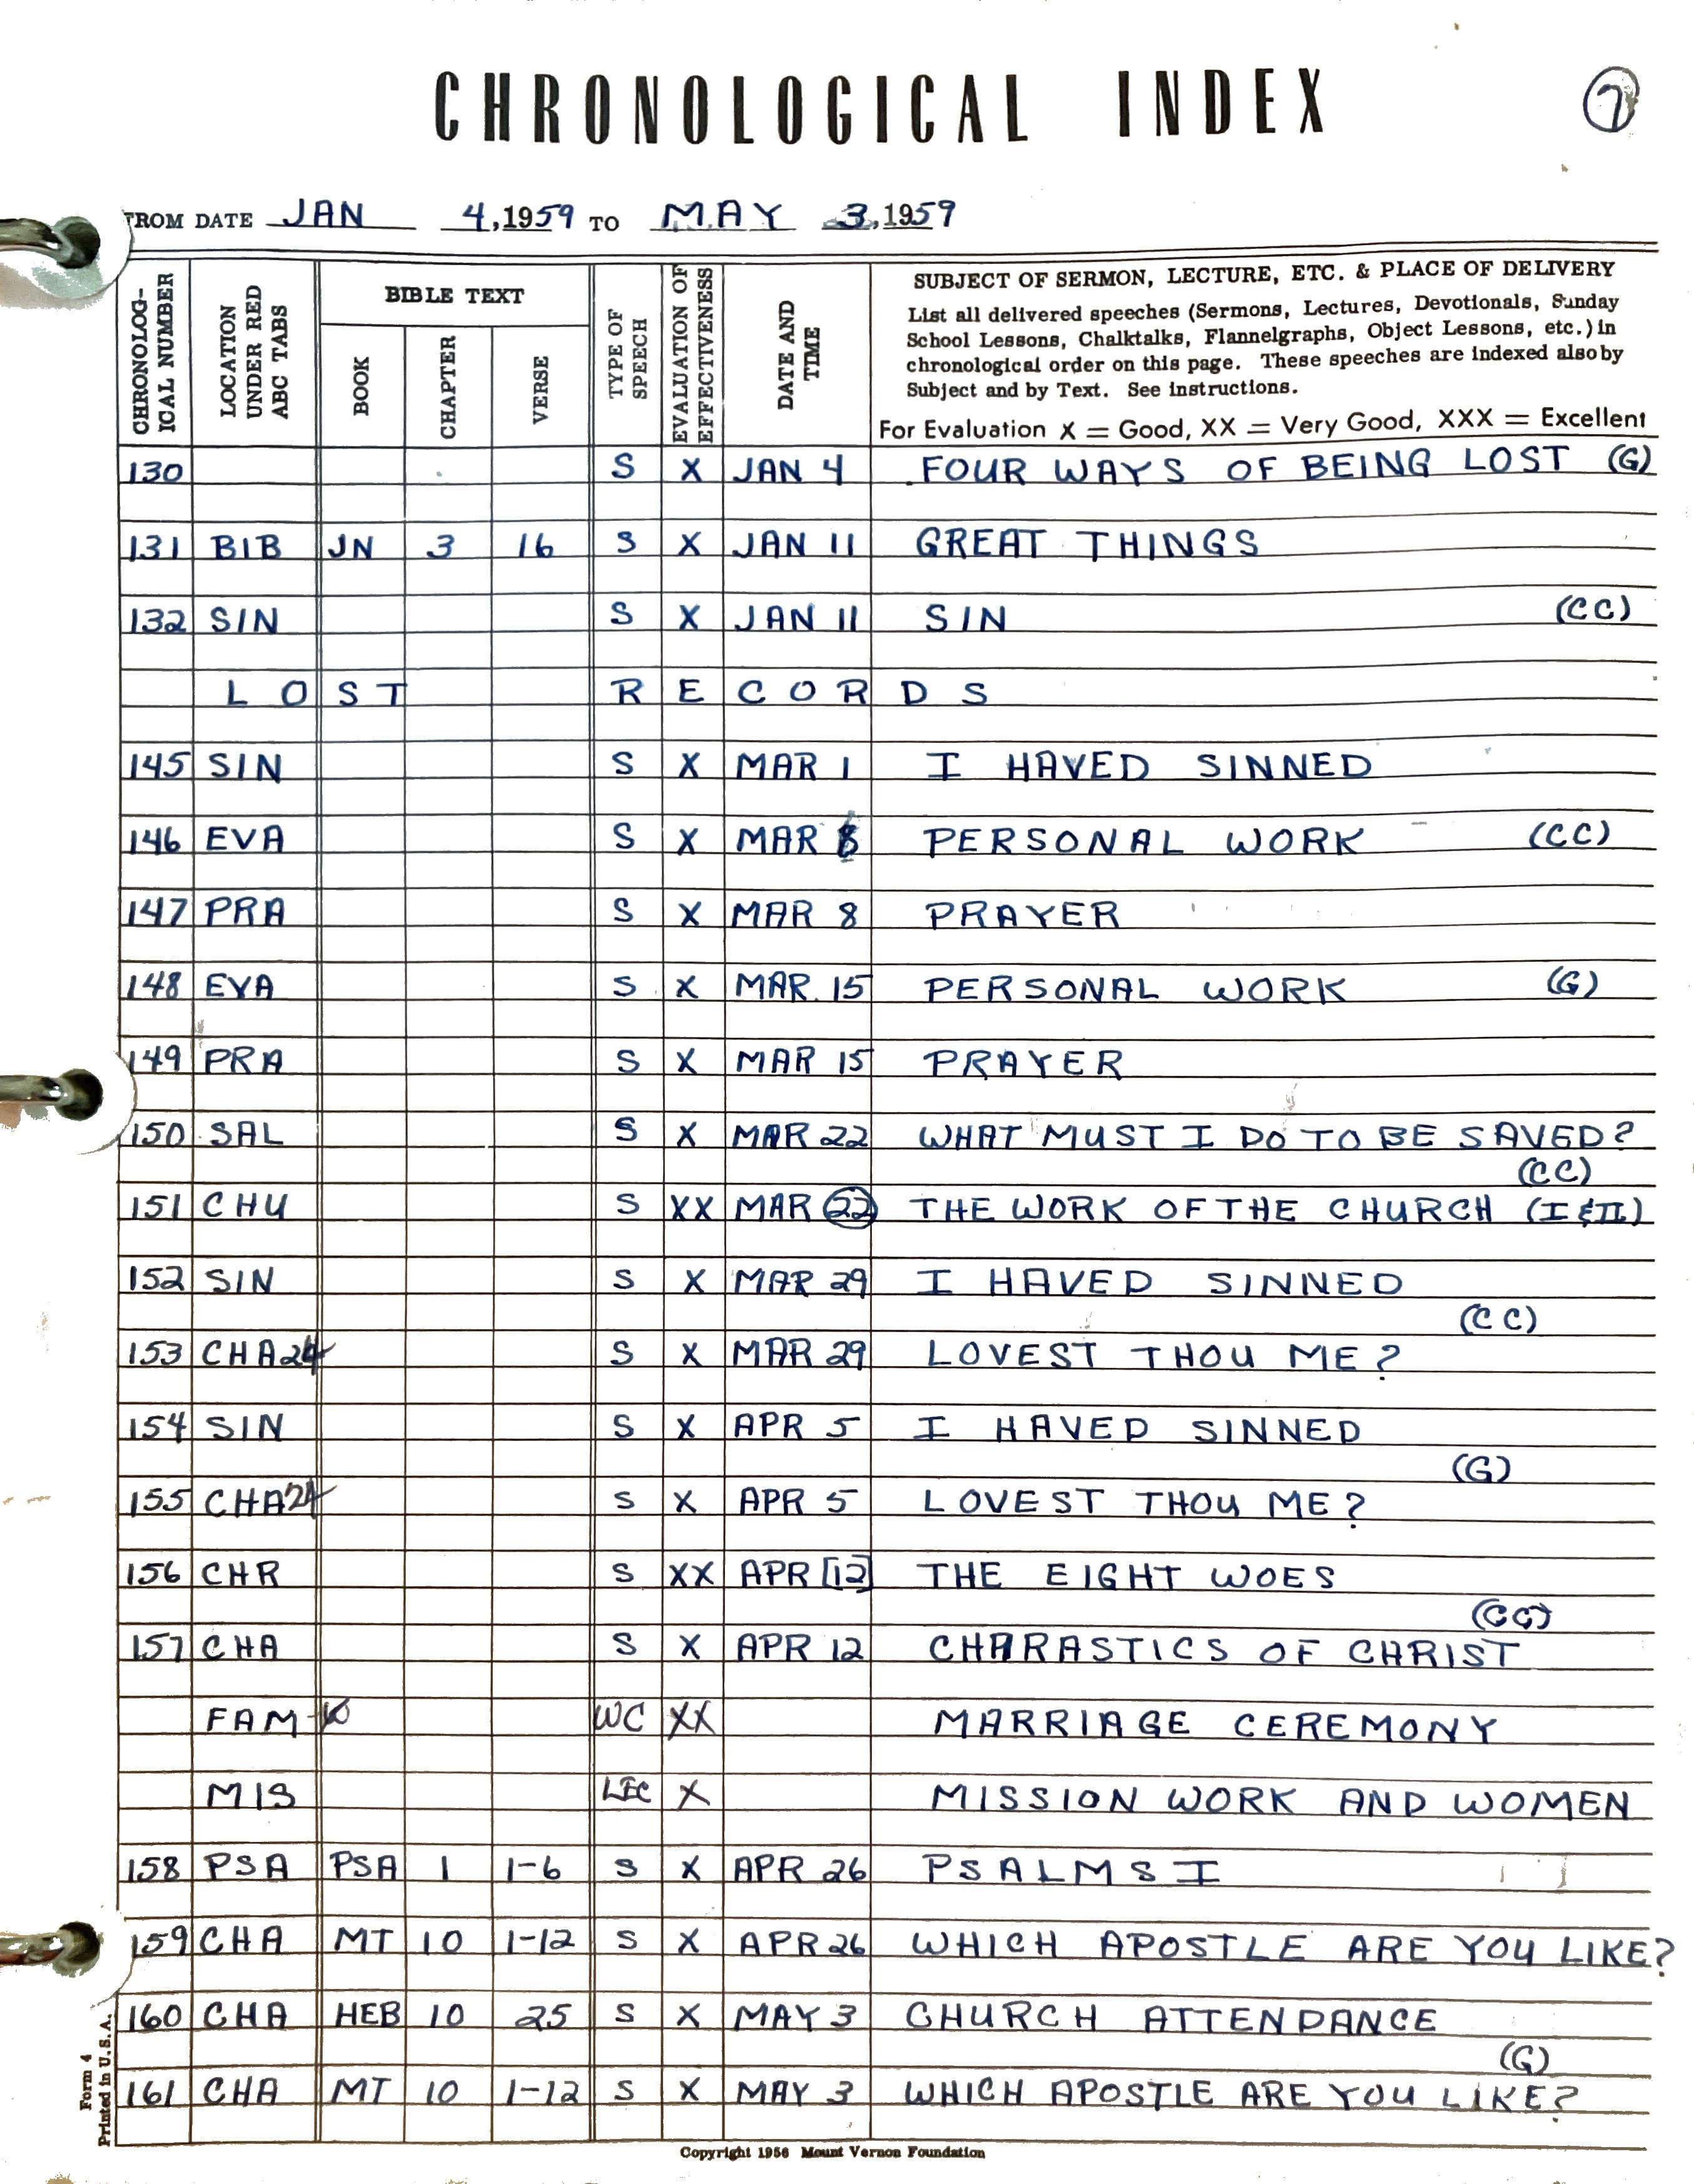 CHRONOLOGICAL INDEX 7
FROM DATE JAN 4, 1959 TO MAY 3, 1959
CHRONOLOG-ICAL NUMBER
LOCATION UNDER RED ABC TABS
BIBLE TEXT
BOOK
CHAPTER
VERSE
TYPE OF SPEECH
EVALUATION OF EFFECTIVENESS
DATE AND TIME
SUBJECT OF SERMON, LECTURE, ETC. & PLACE OF DELIVERY
List all delivered speeches (Sermons, Lectures, Devotionals, Sunday
School Lessons, Chalktalks, Flannelgraphs, Object Lessons, etc.) in
chronological order on this page. These speeches are indexed also by
Subject and by Text. See instructions.
For Evaluation X = Good, XX = Very Good, XXX = Excellent
130 S X JAN 4 FOUR WAYS OF BEING LOST (G)
131 BIB JN 3 16 S X JAN 11 GREAT THINGS
132 SIN S X JAN 11 SIN (CC)
LOST RECORDS
145 SIN S X MAR 1 I HAVED SINNED
146 EVA S X MAR PERSONAL WORK (CC)
147 PRA S X MAR 8 PRAYER
148 EVA S X MAR 15 PERSONAL WORK (G)
149 PRA S X MAR 15 PRAYER
150 SAL S X MAR 22 WHAT MUST I DO TO BE SAVED?
(CC)
151 CHU S XX MAR 22 THE WORK OF THE CHURCH (I & II)
152 SIN S X MAR 29 I HAVED SINNED
(CC)
153 CHA24 S X MAR 29 LOVEST THOU ME?
154 SIN S X APR 5 I HAVED SINNED
(G)
155 CHA24 S X APR 5 LOVEST THOU ME?
156 CHR S XX APR [12] THE EIGHT WOES
157 CHA S X APR 12 CHARASTICS OF CHRIST
FAM WC XX MARRIAGE CEREMONY
MIS LEC X MISSION WORK AND WOMEN
158 PSA PSA 1 1-6 S X APR 26 PSALMS I
159 CHA MT 10 1-12 S X APR 26 WHICH APOSTLE ARE YOU LIKE?
160 CHA HEB 10 25 S X MAY 3 CHURCH ATTENDANCE
(G)
161 CHA MT 10 1-12 S X MAY 3 WHICH APOSTLE ARE YOU LIKE?
Form 4
Printed in U.S.A.
Copyright 1956 Mount Vernon Foundation